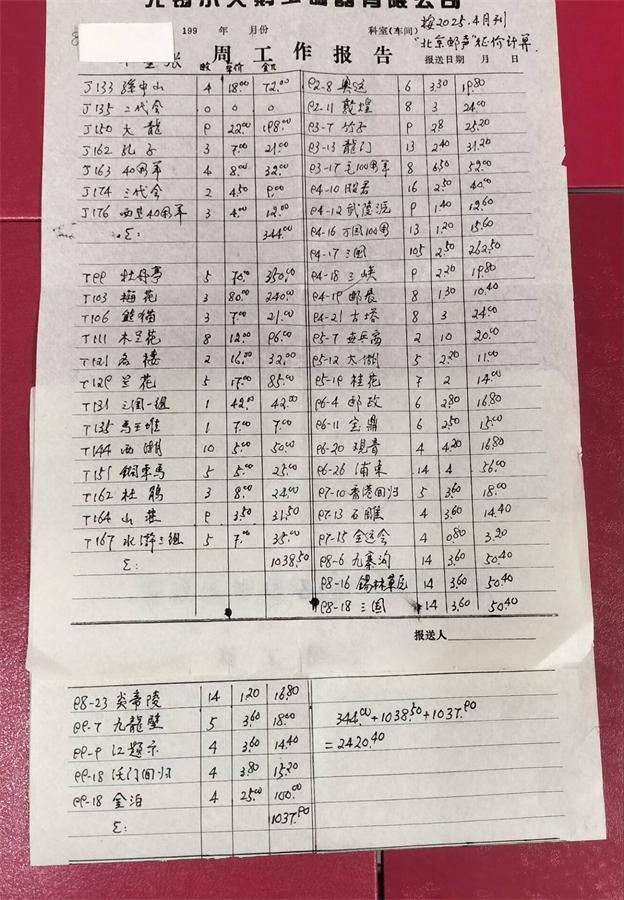 199 年 月份 科室(车间) 按2025.4月刊
"北京邮声"征价计算
周工作报告 报送日期 月 日
枚 单价 合六
J133 孙中山 4 18.00 72.00
J135 二代会 0 0 0
J150 大龍 9 22.00 198.00
J162 孔子 3 7.00 21.00
J163 40周年 4 8.00 32.00
J174 三代会 2 4.50 9.00
J176 西藏40周年 3 4.00 12.00
Σ: 344.00
T99 牡丹亭 5 70.00 350.00
T103 梅花 3 80.00 240.00
T106 熊猫 3 7.00 21.00
T111 木兰花 8 12.00 96.00
T121 名楼 2 16.00 32.00
T129 兰花 5 17.00 85.00
T131 三国一组 1 42.00 42.00
T135 馬王堆 1 7.00 7.00
T144 西湖 10 5.00 50.00
T151 铜車馬 5 5.00 25.00
T162 杜鹃 3 8.00 24.00
T164 山莊 9 3.50 31.50
T167 水滸三组 5 7.00 35.00
Σ: 1038.50
92-8 奥运 6 3.30 19.80
92-11 敦煌 8 3 24.00
93-7 竹子 9 2.8 25.20
93-13 龍门 13 2.40 31.20
93-17 毛100周年 8 6.50 52.00
94-10 昭君 16 2.50 40.00
94-12 武陵源 9 1.40 12.60
94-16 万国100周 13 1.20 15.60
94-17 三国 105 2.50 262.50
94-18 三峡 9 2.20 19.80
94-19 邮展 8 1.30 10.40
94-21 古塔 8 3 24.00
95-7 乒乓高 2 10 20.00
95-12 太湖 5 2.20 11.00
95-19 桂花 7 2 14.00
96-4 邮政 6 2.80 16.80
96-11 金鼎 6 2.50 15.00
96-20 观音 4 4.20 16.80
96-26 浦東 14 4 56.00
97-10 香港回归 5 3.60 18.00
97-13 石雕 4 3.60 14.40
97-15 全运会 4 0.80 3.20
98-6 九寨沟 14 3.60 50.40
98-16 錫林草原 14 3.60 50.40
98-18 三国 14 3.60 50.40
报送人
98-23 炎帝陵 14 1.20 16.80
99-7 九龍壁 5 3.60 18.00
99-9 江题示 4 3.60 14.40
99-18 沃门回归 4 3.80 15.20
99-18 金泊 4 25.00 100.00
Σ: 1037.90
344.00+1038.50+1037.90
=2420.40